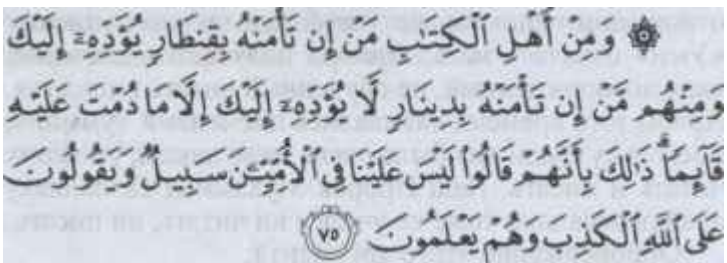 ۞ وَمِنْ أَهْلِ ٱلْكِتَٰبِ مَنْ إِن تَأْمَنْهُ بِقِنطَارٍ يُؤَدِّهِۦٓ إِلَيْكَ
وَمِنْهُم مَّنْ إِن تَأْمَنْهُ بِدِينَارٍ لَّا يُؤَدِّهِۦٓ إِلَيْكَ إِلَّا مَا دُمْتَ عَلَيْهِ
قَآئِمًا ۗ ذَٰلِكَ بِأَنَّهُمْ قَالُوا۟ لَيْسَ عَلَيْنَا فِى ٱلْأُمِّيِّـۧنَ سَبِيلٌ وَيَقُولُونَ
عَلَى ٱللَّهِ ٱلْكَذِبَ وَهُمْ يَعْلَمُونَ ۝٧٥